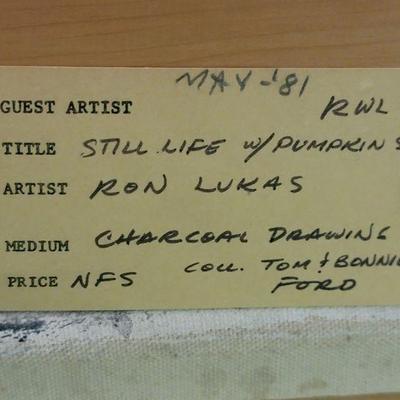 MAY-'81
GUEST ARTIST RWL
TITLE STILL LIFE W/PUMPKINS
ARTIST RON LUKAS
MEDIUM CHARCOAL DRAWING
COLL. TOM & BONNIE
PRICE NFS FORD